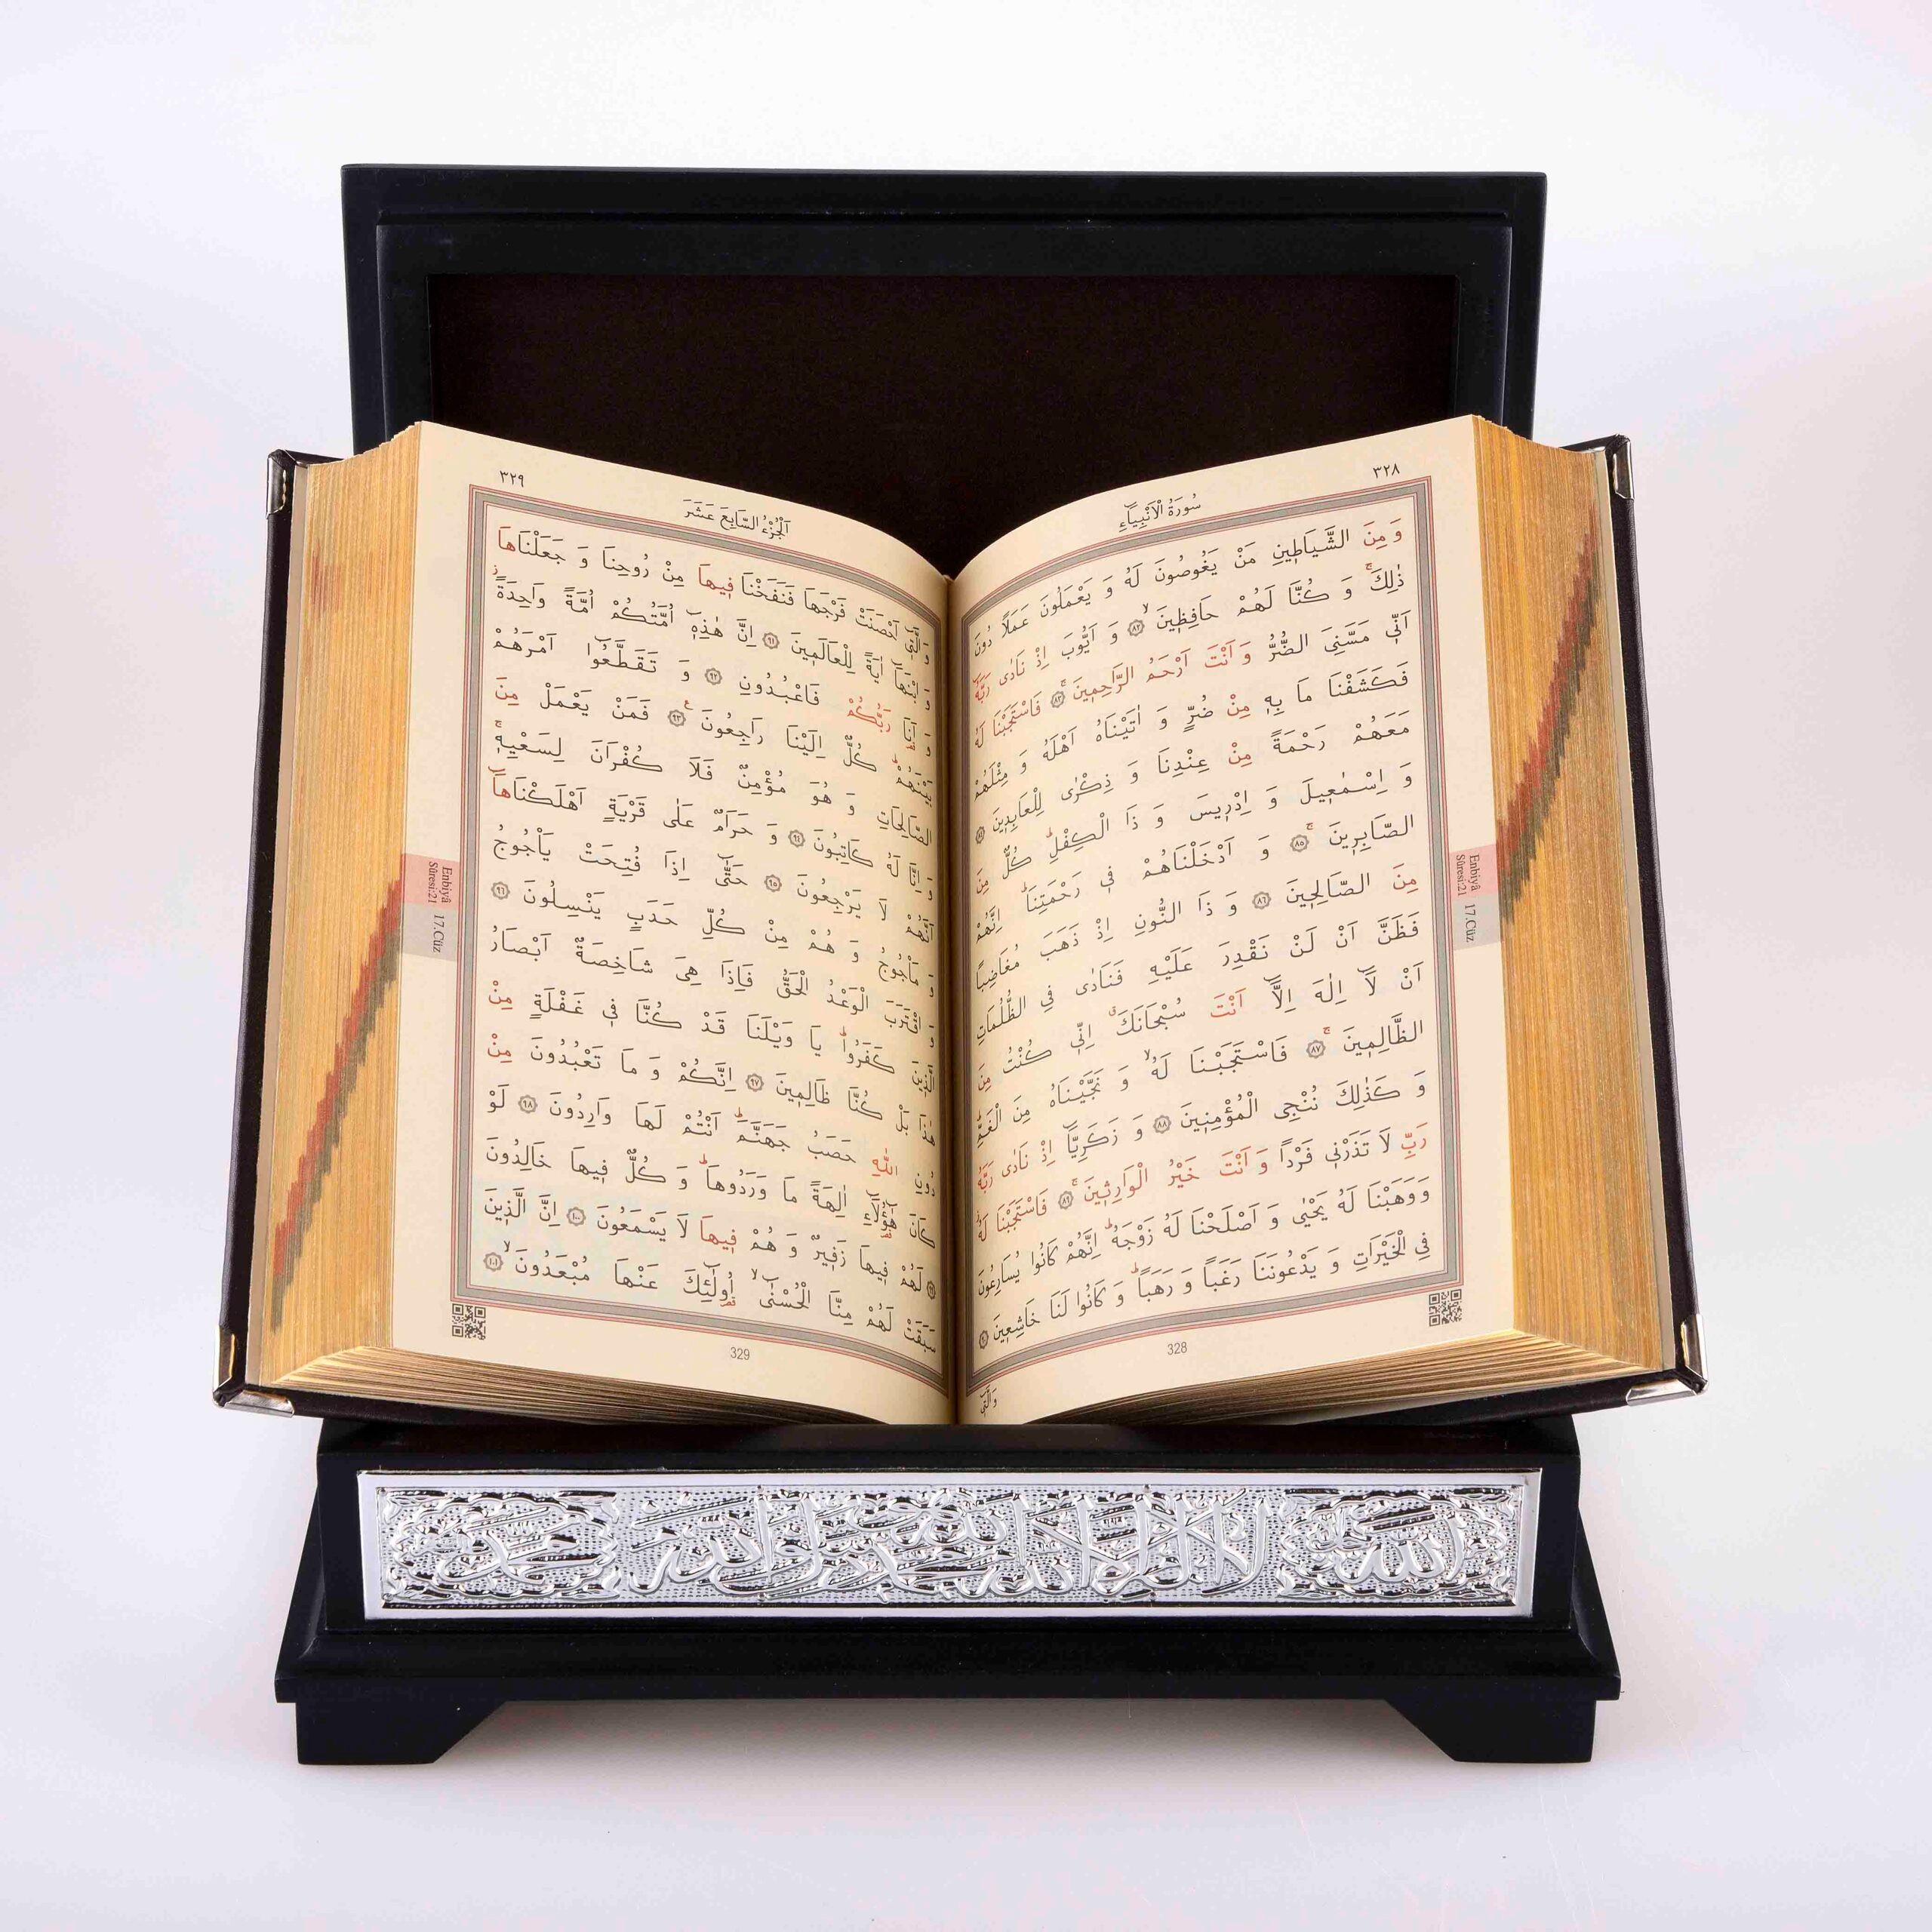 ٣٢٨
سُورَةُ الْاَنْبِيَٓاءِ
وَ مِنَ الشَّيَاطِينِ مَنْ يَغُوصُونَ لَهُ وَ يَعْمَلُونَ عَمَلاً دُونَ
ذٰلِكَۚ وَ كُنَّا لَهُمْ حَافِظِينَۙ ٨٢ وَ اَيُّوبَ اِذْ نَادٰى رَبَّهُٓ
اَنِّى مَسَّنِىَ الضُّرُّ وَ اَنْتَ اَرْحَمُ الرَّاحِمِينَۚ ٨٣ فَاسْتَجَبْنَا لَهُ
فَكَشَفْنَا مَا بِهِ مِنْ ضُرٍّ وَ اٰتَيْنَاهُ اَهْلَهُ وَ مِثْلَهُمْ
مَعَهُمْ رَحْمَةً مِنْ عِنْدِنَا وَ ذِكْرٰى لِلْعَابِدِينَ ٨٤
وَ اِسْمٰعِيلَ وَ اِدْرِيسَ وَ ذَا الْكِفْلِۜ كُلٌّ مِنَ
الصَّابِرِينَۚ ٨٥ وَ اَدْخَلْنَاهُمْ فِى رَحْمَتِنَاۜ اِنَّهُمْ
مِنَ الصَّالِحِينَ ٨٦ وَ ذَا النُّونِ اِذْ ذَهَبَ مُغَاضِبًا
فَظَنَّ اَنْ لَنْ نَقْدِرَ عَلَيْهِ فَنَادٰى فِى الظُّلُمَاتِ
اَنْ لَٓا اِلٰهَ اِلَّٓا اَنْتَ سُبْحَانَكَۗ اِنِّى كُنْتُ مِنَ
الظَّالِمِينَۚ ٨٧ فَاسْتَجَبْنَا لَهُۙ وَ نَجَّيْنَاهُ مِنَ الْغَمِّۜ
وَ كَذٰلِكَ نُنْجِى الْمُؤْمِنِينَ ٨٨ وَ زَكَرِيَّٓا اِذْ نَادٰى رَبَّهُ
رَبِّ لَا تَذَرْنِى فَرْداً وَ اَنْتَ خَيْرُ الْوَارِثِينَۚ ٨٩ فَاسْتَجَبْنَا لَهُ
وَوَهَبْنَا لَهُ يَحْيٰى وَ اَصْلَحْنَا لَهُ زَوْجَهُۜ اِنَّهُمْ كَانُوا يُسَارِعُونَ
فِى الْخَيْرَاتِ وَ يَدْعُونَنَا رَغَباً وَ رَهَباًۜ وَ كَانُوا لَنَا خَاشِعِينَ ٩٠
328
وَالَّتِٓى
Enbiyâ
Sûresi:21
17.Cüz
٣٢٩
اَلْجُزْءُ السَّابِعَ عَشَرَ
وَ الَّتِٓى اَحْصَنَتْ فَرْجَهَا فَنَفَخْنَا فِيهَا مِنْ رُوحِنَا وَ جَعَلْنَاهَا
وَ ابْنَهَٓا اٰيَةً لِلْعَالَمِينَ ٩١ اِنَّ هٰذِهِٓ اُمَّتُكُمْ اُمَّةً وَاحِدَةًۘ
وَ اَنَا رَبُّكُمْ فَاعْبُدُونِ ٩٢ وَ تَقَطَّعُٓوا اَمْرَهُمْ
بَيْنَهُمْۜ كُلٌّ اِلَيْنَا رَاجِعُونَ ٩٣ فَمَنْ يَعْمَلْ مِنَ
الصَّالِحَاتِ وَ هُوَ مُؤْمِنٌ فَلَا كُفْرَانَ لِسَعْيِهِۚ
وَ اِنَّا لَهُ كَاتِبُونَ ٩٤ وَ حَرَامٌ عَلٰى قَرْيَةٍ اَهْلَكْنَاهَٓا
اَنَّهُمْ لَا يَرْجِعُونَ ٩٥ حَتّٰٓى اِذَا فُتِحَتْ يَاْجُوجُ
وَ مَاْجُوجُ وَ هُمْ مِنْ كُلِّ حَدَبٍ يَنْسِلُونَ ٩٦
وَ اقْتَرَبَ الْوَعْدُ الْحَقُّ فَاِذَا هِىَ شَاخِصَةٌ اَبْصَارُ
الَّذِينَ كَفَرُواۜ يَا وَيْلَنَا قَدْ كُنَّا فِى غَفْلَةٍ مِنْ
هٰذَا بَلْ كُنَّا ظَالِمِينَ ٩٧ اِنَّكُمْ وَ مَا تَعْبُدُونَ مِنْ
دُونِ اللّٰهِ حَصَبُ جَهَنَّمَۜ اَنْتُمْ لَهَا وَارِدُونَ ٩٨ لَوْ
كَانَ هٰٓؤُلَٓاءِ اٰلِهَةً مَا وَرَدُوهَاۜ وَ كُلٌّ فِيهَا خَالِدُونَ
٩٩ لَهُمْ فِيهَا زَفِيرٌ وَ هُمْ فِيهَا لَا يَسْمَعُونَ ١٠٠ اِنَّ الَّذِينَ
سَبَقَتْ لَهُمْ مِنَّا الْحُسْنٰٓىۙ اُو۬لٰٓئِكَ عَنْهَا مُبْعَدُونَۙ ١٠١
329
Enbiyâ
Sûresi:21
17.Cüz
الله
لا اله الا الله محمد رسول الله
محمد